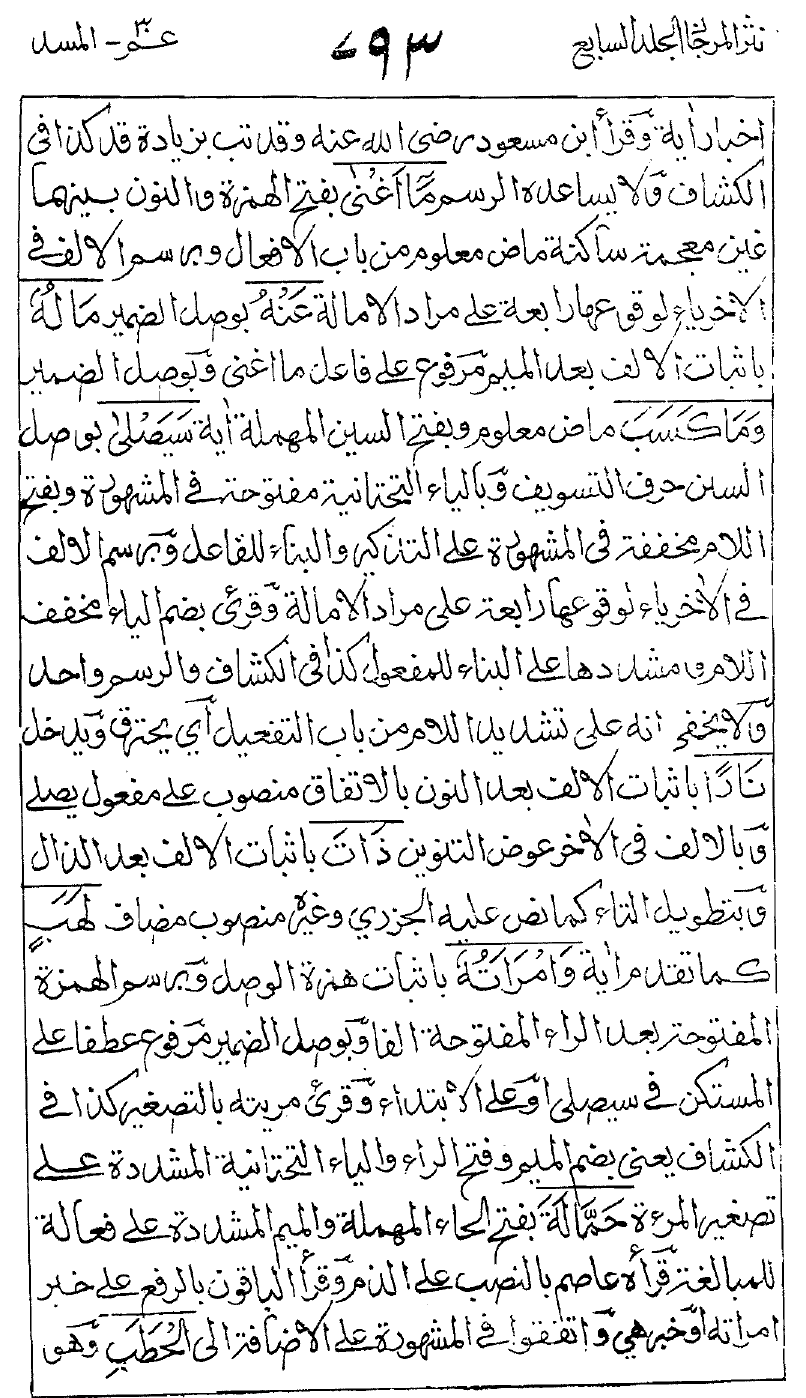 نثر المرجان المجلد السابع
٧٩٣
عمّ ٣ - المسد
اخبار اٰية وَّقرأ ابن مسعود رضى الله عنه وقد تب بزيادة قد كذا فى
الكشاف وَّلا يساعده الرسم مَّا اَغْنٰى بفتح الهمزة والنون بينهما
غين معجمة ساكنة ماض معلوم من باب الافعال وبرسم الالف فے
الاٰخر ياء لوقوعها رابعة على مراد الامالة عَنْهُ بوصل الضمير مَالُهٗ
باثبات الالف بعد الميم مَّرفوع على فاعل ما اغنى وَّبوصل الضمير
وَمَا كَسَبَ ماض معلوم وبفتح السين المهملة اٰية سَيَصْلٰى بوصل
السين حرف التسويف وَّبالياء التحتانية مفتوحة فے المشهورة وبفتح
اللام مخففة فى المشهورة على التذكير والبناء للفاعل وَّبرسم الالف
فے الاٰخر ياء لوقوعها رابعة على مراد الامالة وَّقرئ بضم الياء مخفف
اللام ومشددها على البناء للمفعول كذا فى الكشاف والرسم واحد
وَّلا يخفى انه على تشديد اللام من باب التفعيل أي يحترق وَّيدخل
نَارًا باثبات الالف بعد النون بالاتفاق منصوب على مفعول يصلے
وَّبالالف فى الاٰخر عوض التنوين ذَاتَ باثبات الالف بعد الذال
وَّبتطويل التاء كما نص عليه الجزري وغيره منصوب مضاف لَهَبٍ
كما تقدم اٰية وَامْرَاَتُهٗ باثبات همزة الوصل وَّبرسم الهمزة
المفتوحة بعد الراء المفتوحة الفا وَّبوصل الضمير مَرفوع عطفا على
المستكن فے سيصلى اوَّعلى الابتداء وَّقرئ مريته بالتصغير كذا فے
الكشاف يعنى بضم الميم وفتح الراء والياء التحتانية المشددة على
تصغير المرءة حَمَّالَةَ بفتح الحاء المهملة والميم المشددة على فعالة
للمبالغة قَرأه عاصم بالنصب على الذم وَّقرأ الباقون بالرفع على خبر
امراته اوَّخبر هي وَّاتفقوا فے المشهورة على الاضافة الى الْحَطَبِ وَّهو